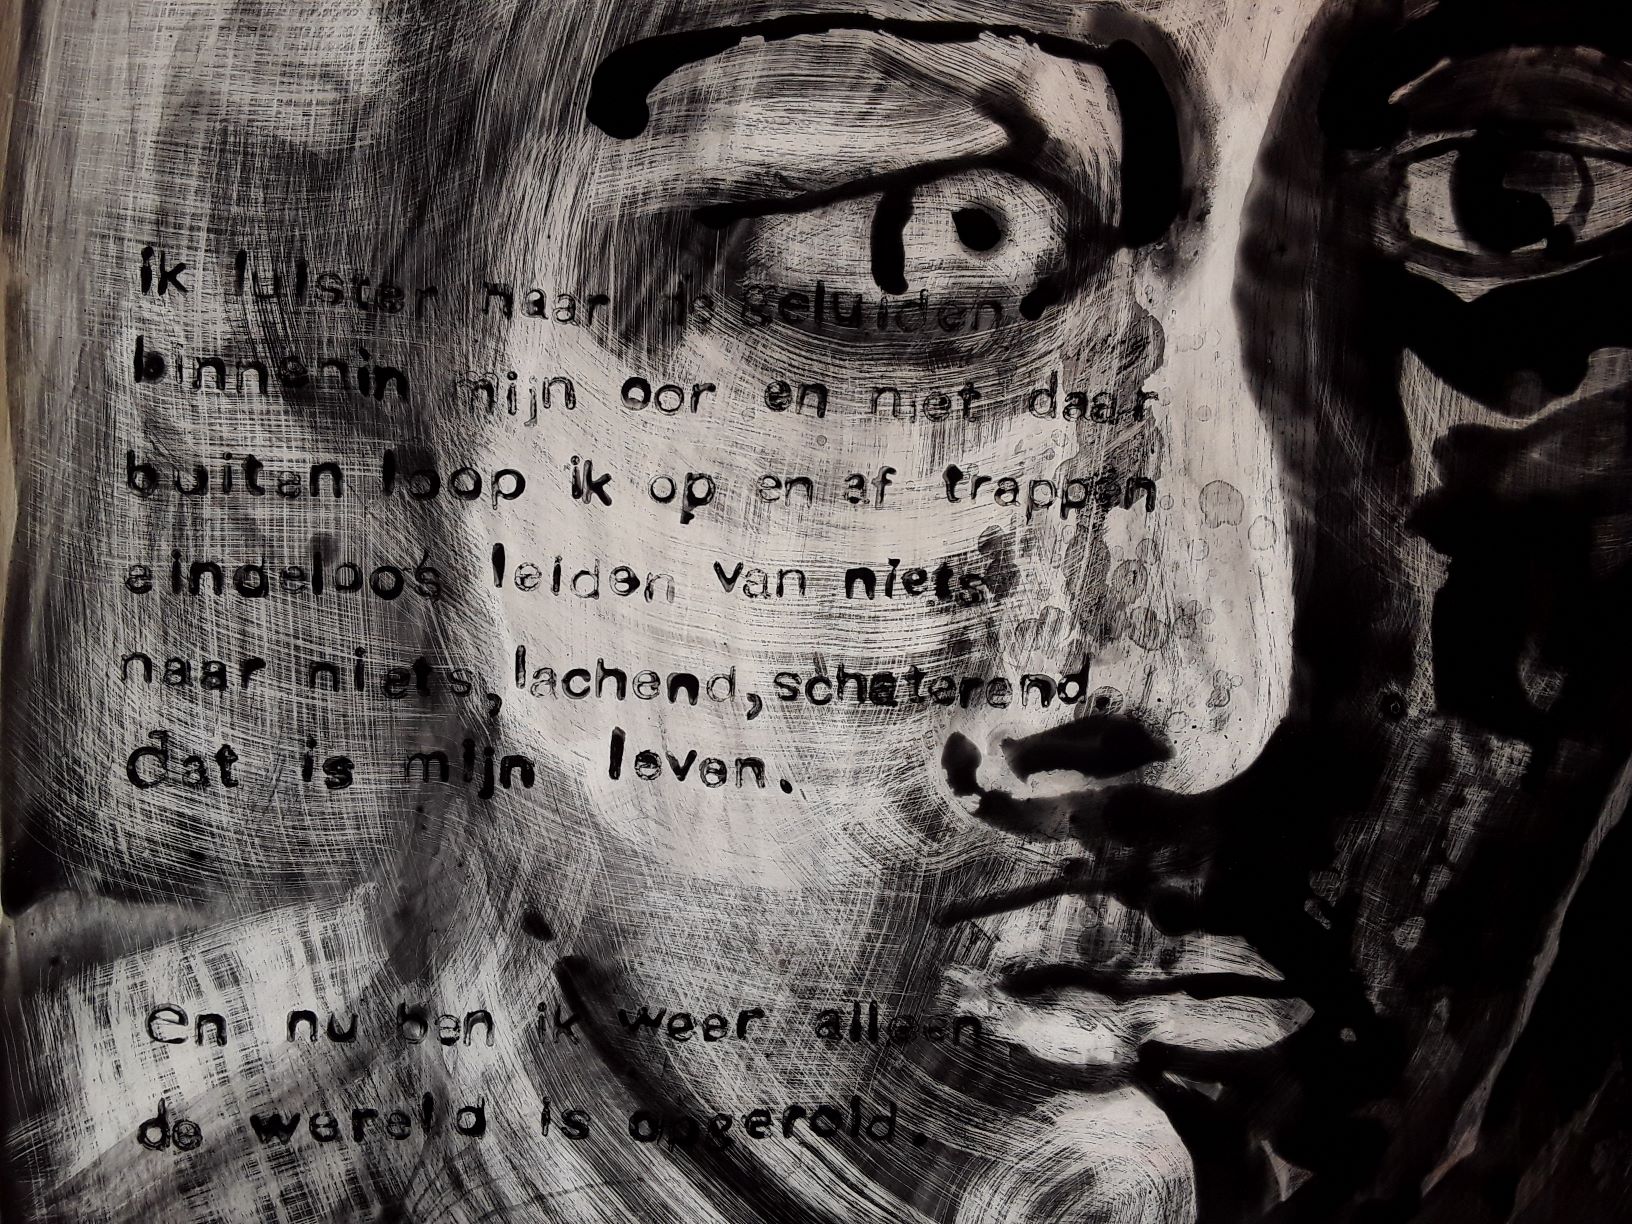 ik luister naar de geluiden
binnenin mijn oor en niet daar
buiten loop ik op en af trappen
eindeloos leiden van niets
naar niets, lachend, schaterend.
dat is mijn leven.
en nu ben ik weer alleen
de wereld is opgerold.